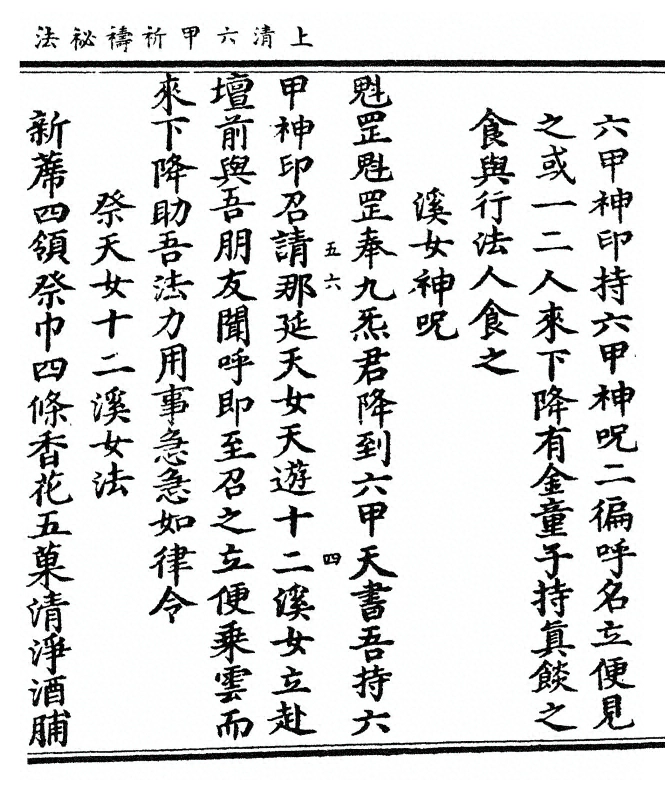 上清六甲祈禱祕法
六甲神印持六甲神呪二徧呼名立便見
之或一二人來下降有金童子持眞餤之
食與行法人食之
溪女神呪
魁罡魁罡奉九炁君降到六甲天書吾持六
五六
四
甲神印召請那延天女天遊十二溪女立赴
壇前與吾朋友聞呼即至召之立便乗雲而
來下降助吾法力用事急急如律令
祭天女十二溪女法
新蓆四領祭巾四條香花五菓清淨酒脯